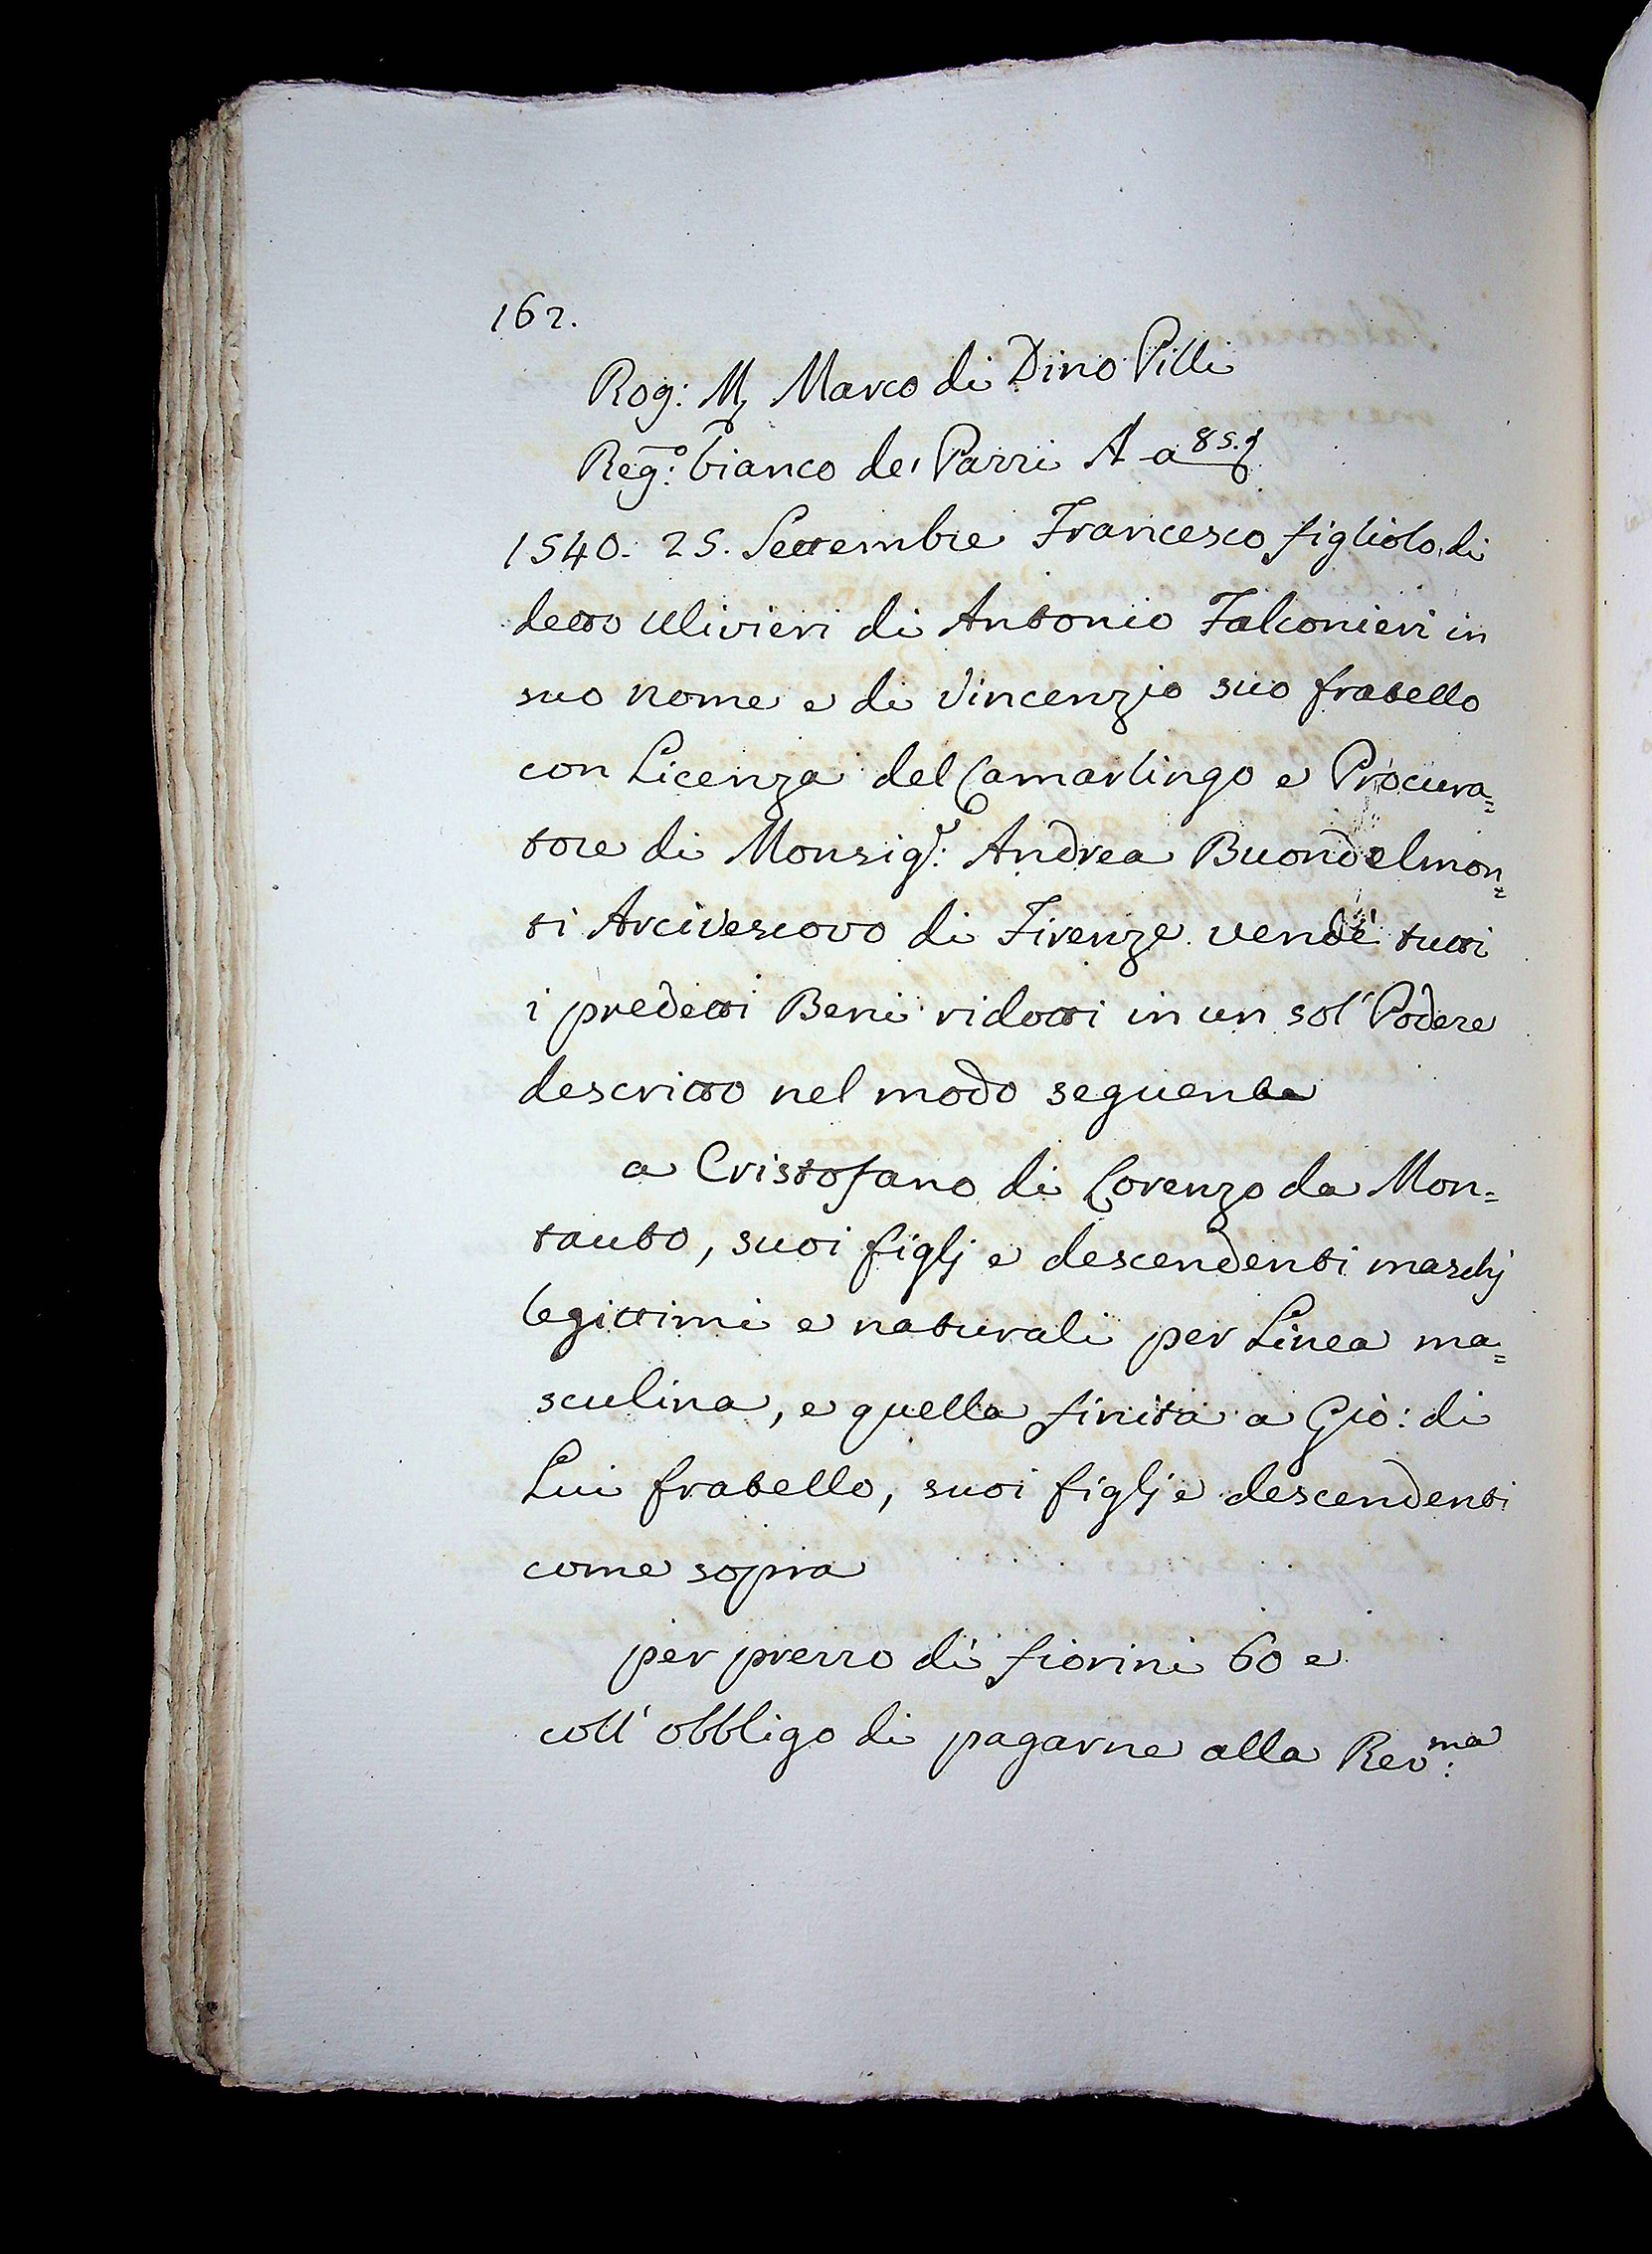 162.
Rog: M Marco di Dino Pilli
Reg:º bianco de' Pazzi A a 85.
1540. 25. Settembre Francesco figliolo di
detto Ulivieri di Antonio Falconieri in
suo nome e di Vincenzio suo fratello
con Licenza del Camarlingo e Procura=
tore di Monsigr: Andrea Buondelmon=
ti Arcivescovo di Firenze vendè tutti
i predetti Beni ridotti in un sol' Podere
descritto nel modo seguente
a Cristofano di Lorenzo da Mon=
tauto, suoi figlj e descendenti maschj
legittimi e naturali per Linea ma=
sculina, e quella finita a Gio: di
Lui fratello, suoi figlj e descendenti
come sopra
per prezzo di fiorini 60 e
coll' obbligo di pagarne alla Rev:ma